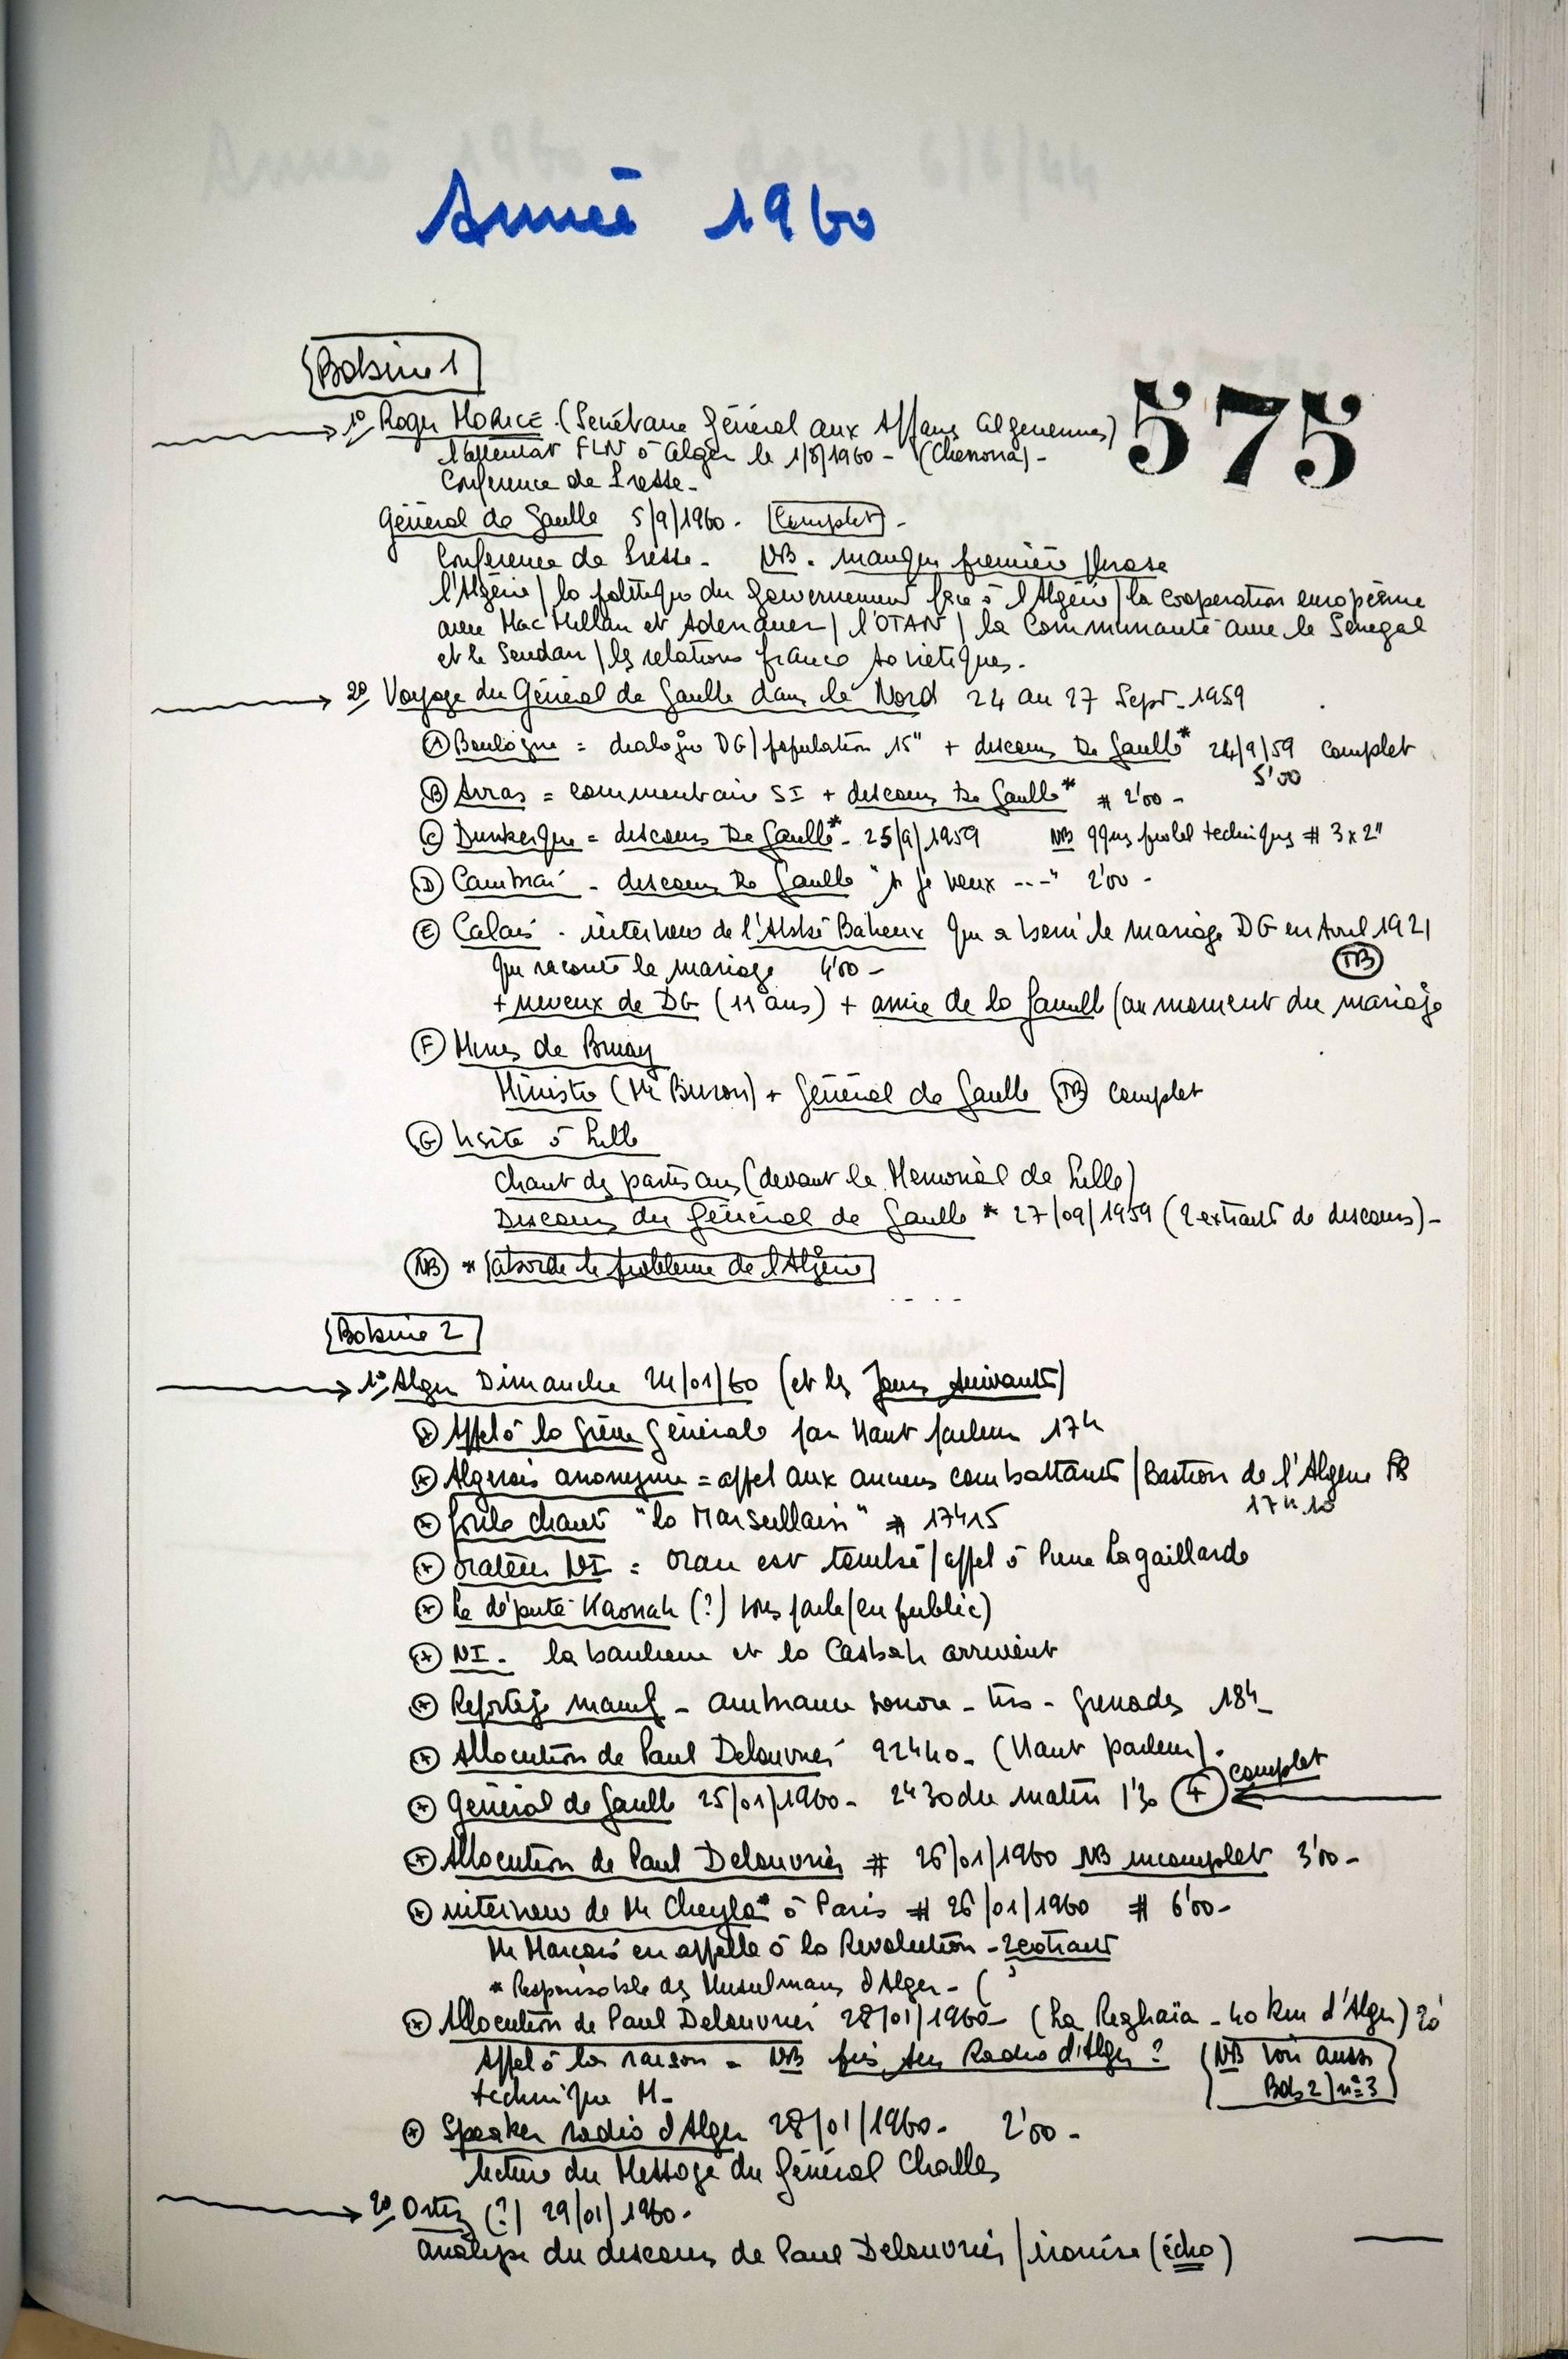 Année 1960
Bobine 1
575
1° Roger MORICE (Secrétaire Général aux Affaires algériennes)
l'attentat FLN à Alger le 1/8/1960 - (Chenoua) -
Conférence de Presse -
Général de Gaulle 5/9/1960 - Complet -
Conférence de Presse - NB. manque première phrase
l'Algérie / la politique du gouvernement face à l'Algérie / la coopération européenne
avec Mac Millan et Adenauer / l'OTAN / la Communauté avec le Sénégal
et le Soudan / les relations franco soviétiques.
2° Voyage du Général de Gaulle dans le Nord 24 au 27 Sept. 1959
A Boulogne = dialogue DG / population 15" + discours De Gaulle* 24/9/59 complet
5'00
B Arras = commentaire SI + discours De Gaulle* # 2'00 -
C Dunkerque = discours De Gaulle* - 25/9/1959 NB qques probl techniques # 3 x 2"
D Cambrai - discours De Gaulle "si je veux ---" 2'00 -
E Calais - interview de l'Abbé Baheux qui a béni le mariage DG en Avril 1921
qui raconte le mariage 4'00 - TB
+ neveux de DG (11 ans) + amie de la famille (au moment du mariage
F Mines de Bruay
Ministre (Mr Buron) + Général de Gaulle TB complet
G Visite à Lille
Chant des partisans (devant le Mémorial de Lille)
Discours du Général de Gaulle * 27/09/1959 (2 extraits de discours) -
NB * aborde le problème de l'Algérie
Bobine 2
1° Alger Dimanche 24/01/60 (et les jours suivants)
* Appel à la grève générale par Haut parleur 17h
* Algérois anonyme = appel aux anciens combattants / Bastion de l'Algérie FR
17h10
* foule chante "la Marseillaise" # 17h15
* orateur NI = Oran est tombé / appel à Pierre Lagaillarde
* Le député Kaouah (?) vous parle (en public)
* NI - la banlieue et la Casbah arrivent
* Reportage - ambiance sonore - tirs - grenades 18h -
* Allocution de Paul Delouvrier 22h40 - (Haut parleur).
* Général de Gaulle 25/01/1960 - 2h30 du matin 1'30 + complet
* Allocution de Paul Delouvrier # 26/01/1960 NB incomplet 3'00 -
* interview de Mr Cheyla* à Paris # 26/01/1960 # 6'00 -
Mr Marçais en appelle à la Révolution - 2 extraits
* Responsable des Musulmans d'Alger - (
* Allocution de Paul Delouvrier 28/01/1960 - (La Reghaïa - 40 km d'Alger) 20'
Appel à la raison - NB pris sur Radio d'Alger ? (NB voir aussi
technique M - Bob 2) n°3
* Speaker radio d'Alger 28/01/1960 - 2'00 -
lecture du Message du Général Challe
2° Ortiz (?) 29/01/1960 -
analyse du discours de Paul Delouvrier / ironise (écho)